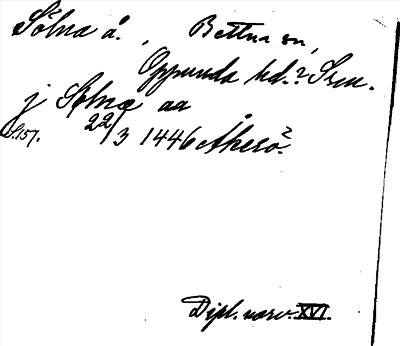 Sölna å., Bettna sn,
Oppunda hd.? Srm.
j Sølnæ aa
S. 157. 22/3 1446 Åkerö?
Dipl. norv. XVI.